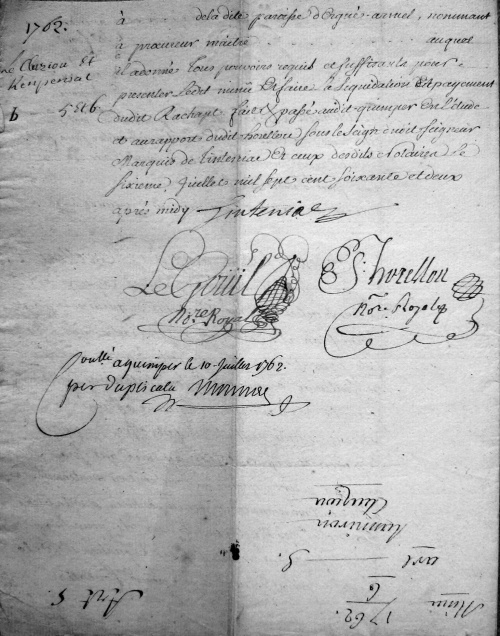 1762.
à dela dite paroisse d'Ergué-armel, nommant
à procureur maitre auquel
il a donné tous pouvoirs requis et suffisants pour
presenter Ledit minu Et faire la liquidation Et payement
dudit Rachapt fait et passé audit quimper En L'étude
et au raport dudit horellou sous le seign dudit seigneur
Marquis de Tinteniac Et ceux desdits Notaires Le
sixieme Juillet mil sept cent soixante et deux
après midy Tinteniac
5 et 6
Le Gouil
Nore Royal
horellou
Nore Royal
Con̄llé a quimper le 10 Juillet 1762.
per duplicata
Art 5
1762.
6
art 5.